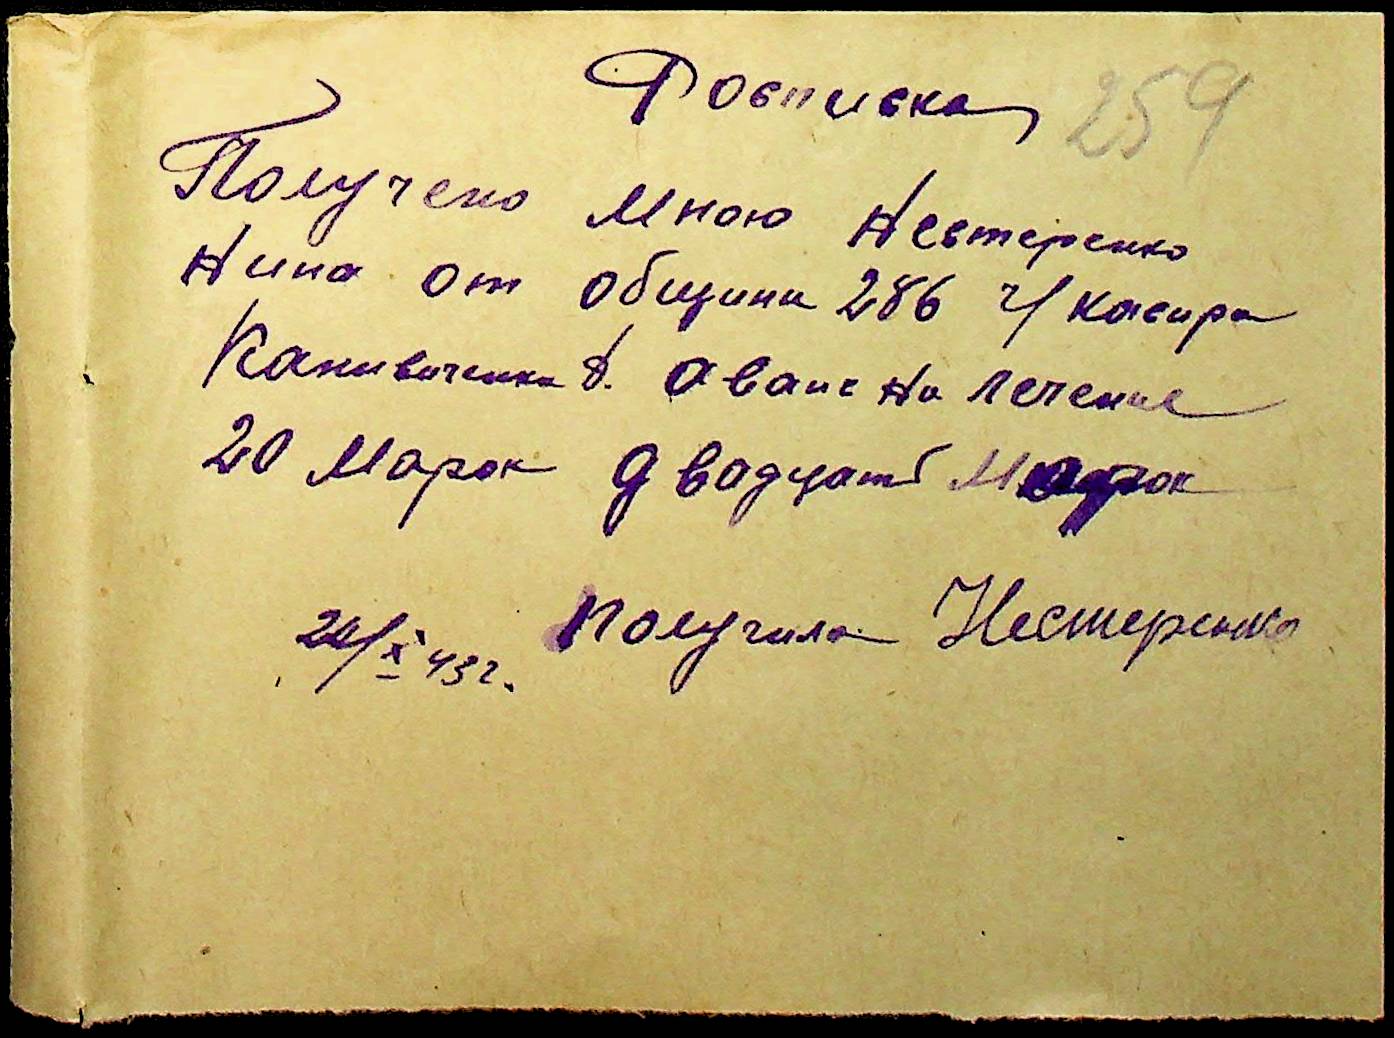 Росписка 259
Получено мною Нестеренко
Нина от общини 286 ч/ касира
аванс на лечение
20 Марок двадцать Марок
X 43 г. Получила Нестеренко